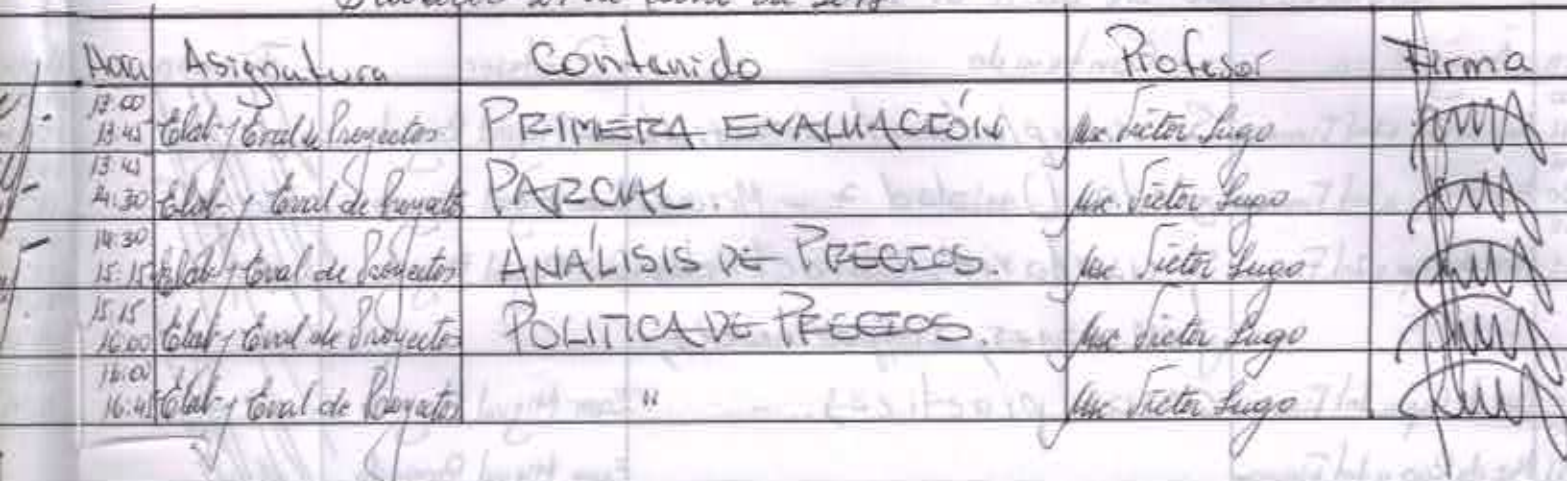 Hora Asignatura Contenido Profesor Firma
13:00
13:45 Elab. y Eval de Proyectos PRIMERA EVALUACIÓN Msc. Victor Lugo
13:45
14:30 Elab. y Eval de Proyectos PARCIAL. Msc. Victor Lugo
14:30
15:15 Elab. y Eval de Proyectos ANÁLISIS DE PRECIOS. Msc. Victor Lugo
15:15
16:00 Elab. y Eval de Proyectos POLITICA DE PRECIOS. Msc. Victor Lugo
16:00
16:45 Elab. y Eval de Proyectos " Msc. Victor Lugo